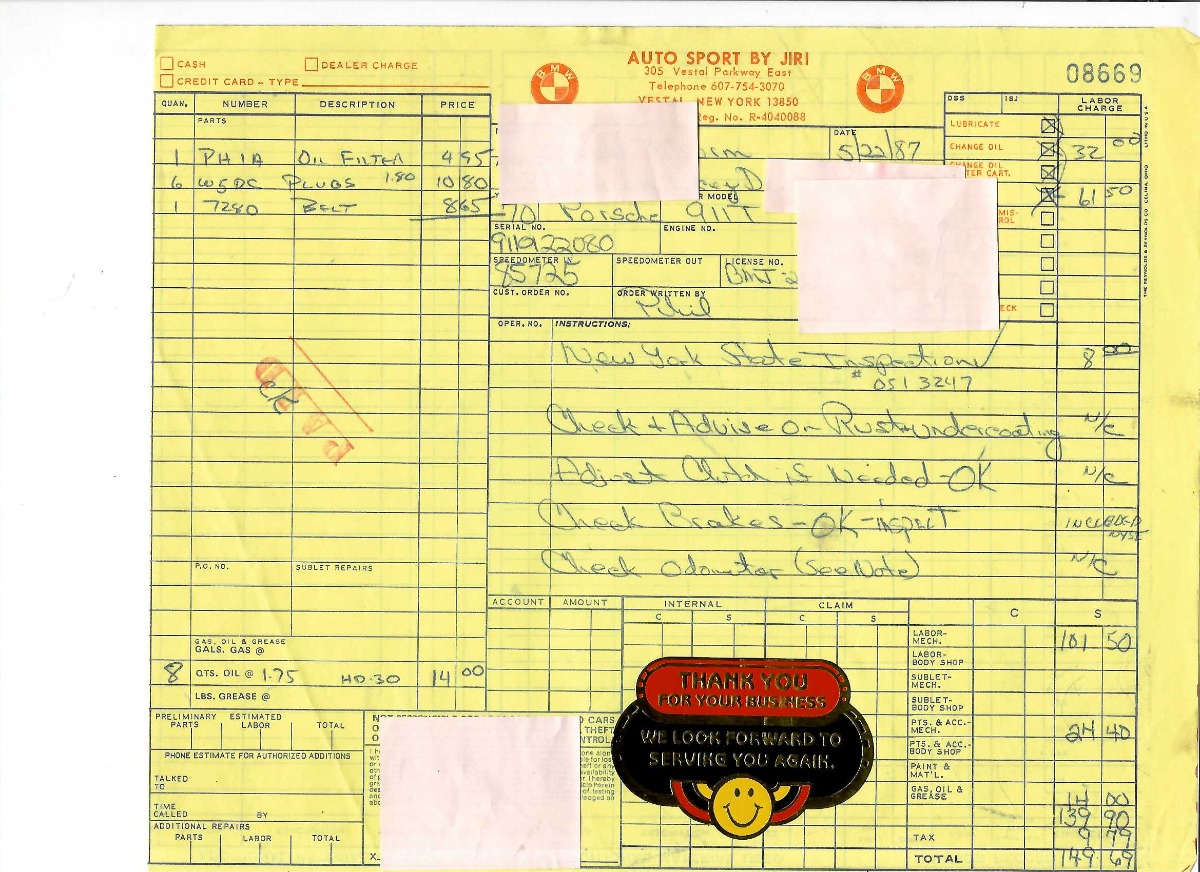 CASH
DEALER CHARGE
CREDIT CARD - TYPE
AUTO SPORT BY JIRI
305 Vestal Parkway East
Telephone 607-754-3070
VESTAL, NEW YORK 13850
Reg. No. R-4040088
BMW
BMW
08669
QUAN. NUMBER DESCRIPTION PRICE
PARTS
1 PH1A OIL FILTER 4 95
6 W5DC PLUGS 1.80 10 80
1 7280 BELT 8 65
DATE
5/22/87
MODEL
70 Porsche 911T
SERIAL NO.
ENGINE NO.
9110122080
SPEEDOMETER IN
SPEEDOMETER OUT
LICENSE NO.
85725
CUST. ORDER NO.
ORDER WRITTEN BY
Phil
LABOR CHARGE
LUBRICATE
CHANGE OIL 32 00
CHANGE OIL
TER CART.
61 50
MIS-
ROL
ECK
OPER. NO. INSTRUCTIONS:
New York State Inspection 8 00
# 0513247
Check + Advise on Rust-undercoating N/C
Adjust Clutch if Needed - OK N/C
Check Brakes - OK - INSPECT INCLUDED NYSI
Check odometer (See Note) N/C
PAID
P.O. NO. SUBLET REPAIRS
GAS, OIL & GREASE
GALS. GAS @
8 QTS. OIL @ 1.75 HD-30 14 00
LBS. GREASE @
ACCOUNT AMOUNT
INTERNAL CLAIM
C S C S
C S
LABOR-MECH. 101 50
LABOR-BODY SHOP
SUBLET-MECH.
SUBLET-BODY SHOP
PTS. & ACC.-MECH. 24 40
PTS. & ACC.-BODY SHOP
PAINT & MAT'L.
GAS, OIL & GREASE 14 00
139 90
TAX 9 79
TOTAL 149 69
PRELIMINARY ESTIMATED
PARTS LABOR TOTAL
PHONE ESTIMATE FOR AUTHORIZED ADDITIONS
TALKED TO
TIME CALLED BY
ADDITIONAL REPAIRS
PARTS LABOR TOTAL
X
THANK YOU
FOR YOUR BUSINESS
WE LOOK FORWARD TO
SERVING YOU AGAIN.
LITHO IN U.S.A.